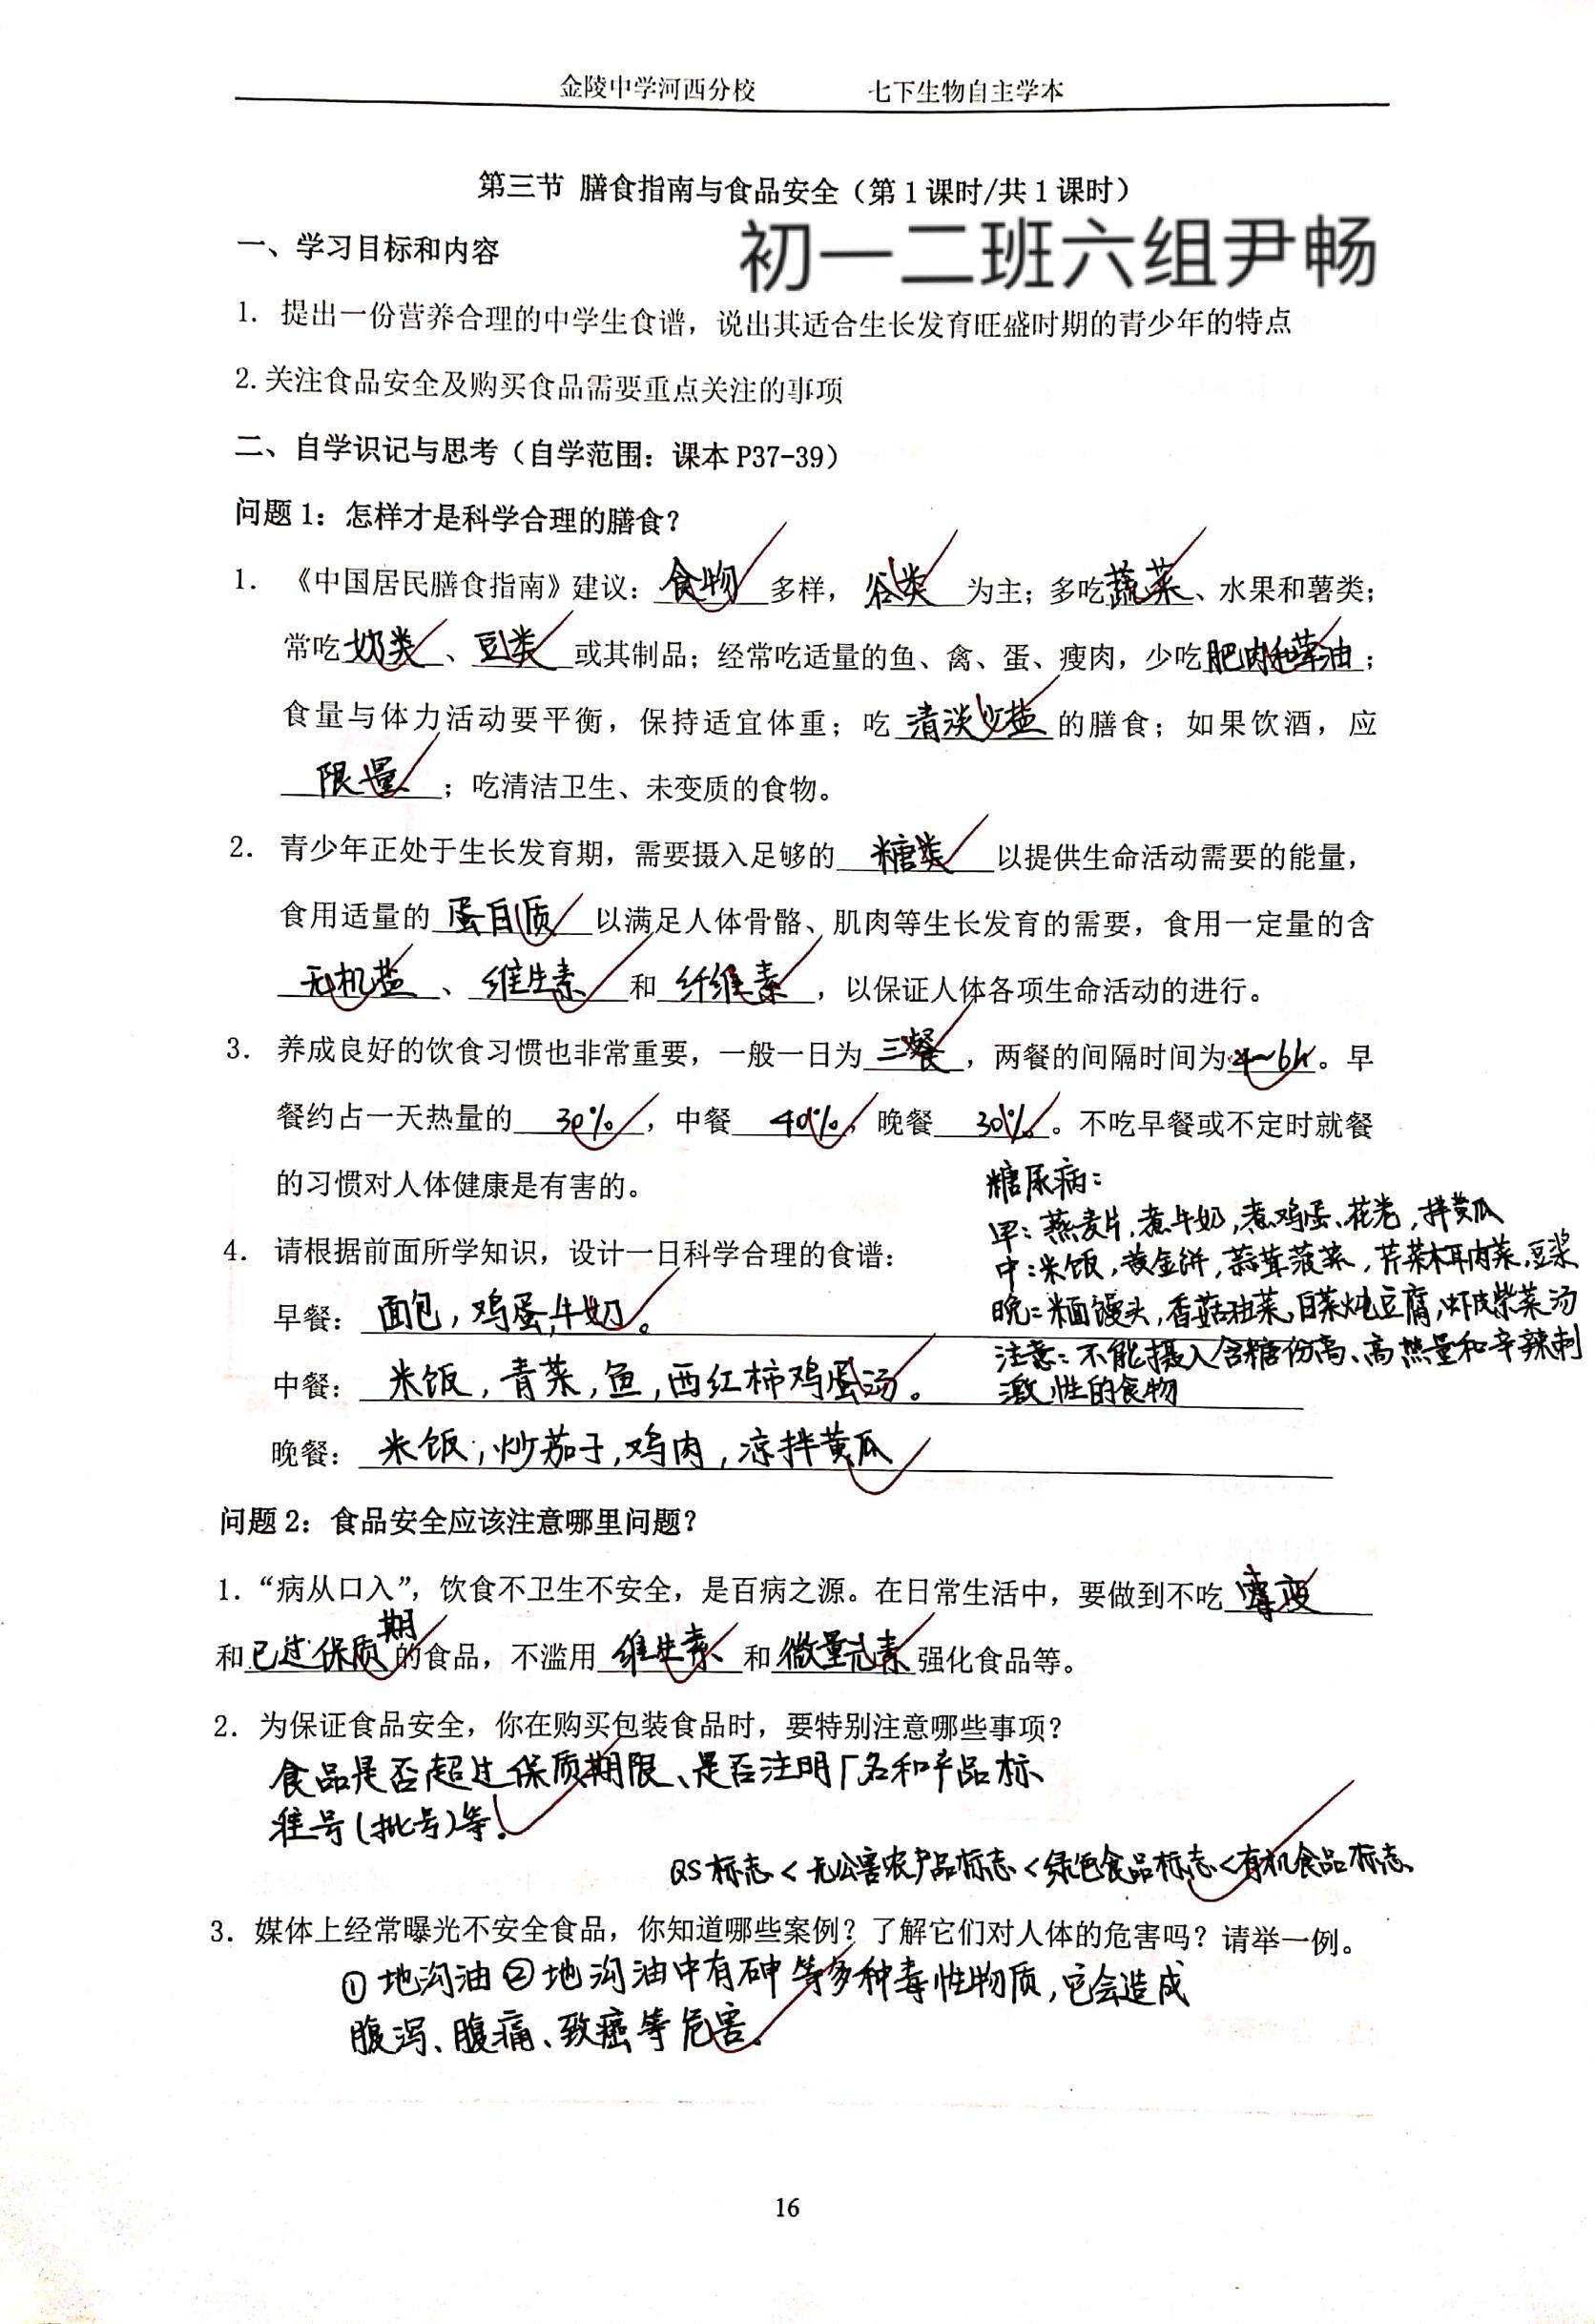 金陵中学河西分校 七下生物自主学本
第三节 膳食指南与食品安全（第1课时/共1课时）
初一二班六组尹畅
一、学习目标和内容
1. 提出一份营养合理的中学生食谱，说出其适合生长发育旺盛时期的青少年的特点
2.关注食品安全及购买食品需要重点关注的事项
二、自学识记与思考（自学范围：课本P37-39）
问题1：怎样才是科学合理的膳食？
1. 《中国居民膳食指南》建议：食物多样，谷类为主；多吃蔬菜、水果和薯类；
常吃奶类、豆类或其制品；经常吃适量的鱼、禽、蛋、瘦肉，少吃肥肉和荤油；
食量与体力活动要平衡，保持适宜体重；吃清淡少盐的膳食；如果饮酒，应
限量；吃清洁卫生、未变质的食物。
2. 青少年正处于生长发育期，需要摄入足够的糖类以提供生命活动需要的能量，
食用适量的蛋白质以满足人体骨骼、肌肉等生长发育的需要，食用一定量的含
无机盐、维生素和纤维素，以保证人体各项生命活动的进行。
3. 养成良好的饮食习惯也非常重要，一般一日为三餐，两餐的间隔时间为4~6h。早
餐约占一天热量的30%，中餐40%，晚餐30%。不吃早餐或不定时就餐
的习惯对人体健康是有害的。
糖尿病：
早：燕麦片，煮牛奶，煮鸡蛋、花卷，拌黄瓜
4. 请根据前面所学知识，设计一日科学合理的食谱：
中：米饭，黄金饼，蒜茸菠菜，芹菜木耳肉菜，豆浆
早餐：面包，鸡蛋，牛奶。
晚：米面馒头，香菇油菜，白菜炖豆腐，虾皮紫菜汤
注意：不能摄入含糖份高、高热量和辛辣刺
激性的食物
中餐：米饭，青菜，鱼，西红柿鸡蛋汤。
晚餐：米饭，炒茄子，鸡肉，凉拌黄瓜
问题2：食品安全应该注意哪里问题？
1.“病从口入”，饮食不卫生不安全，是百病之源。在日常生活中，要做到不吃霉变
和已过保质期的食品，不滥用维生素和微量元素强化食品等。
2. 为保证食品安全，你在购买包装食品时，要特别注意哪些事项？
食品是否超过保质期限、是否注明厂名和产品标
准号(批号)等。
QS标志＜无公害农产品标志＜绿色食品标志＜有机食品标志。
3. 媒体上经常曝光不安全食品，你知道哪些案例？了解它们对人体的危害吗？请举一例。
①地沟油②地沟油中有砷等多种毒性物质，它会造成
腹泻、腹痛、致癌等危害。
16